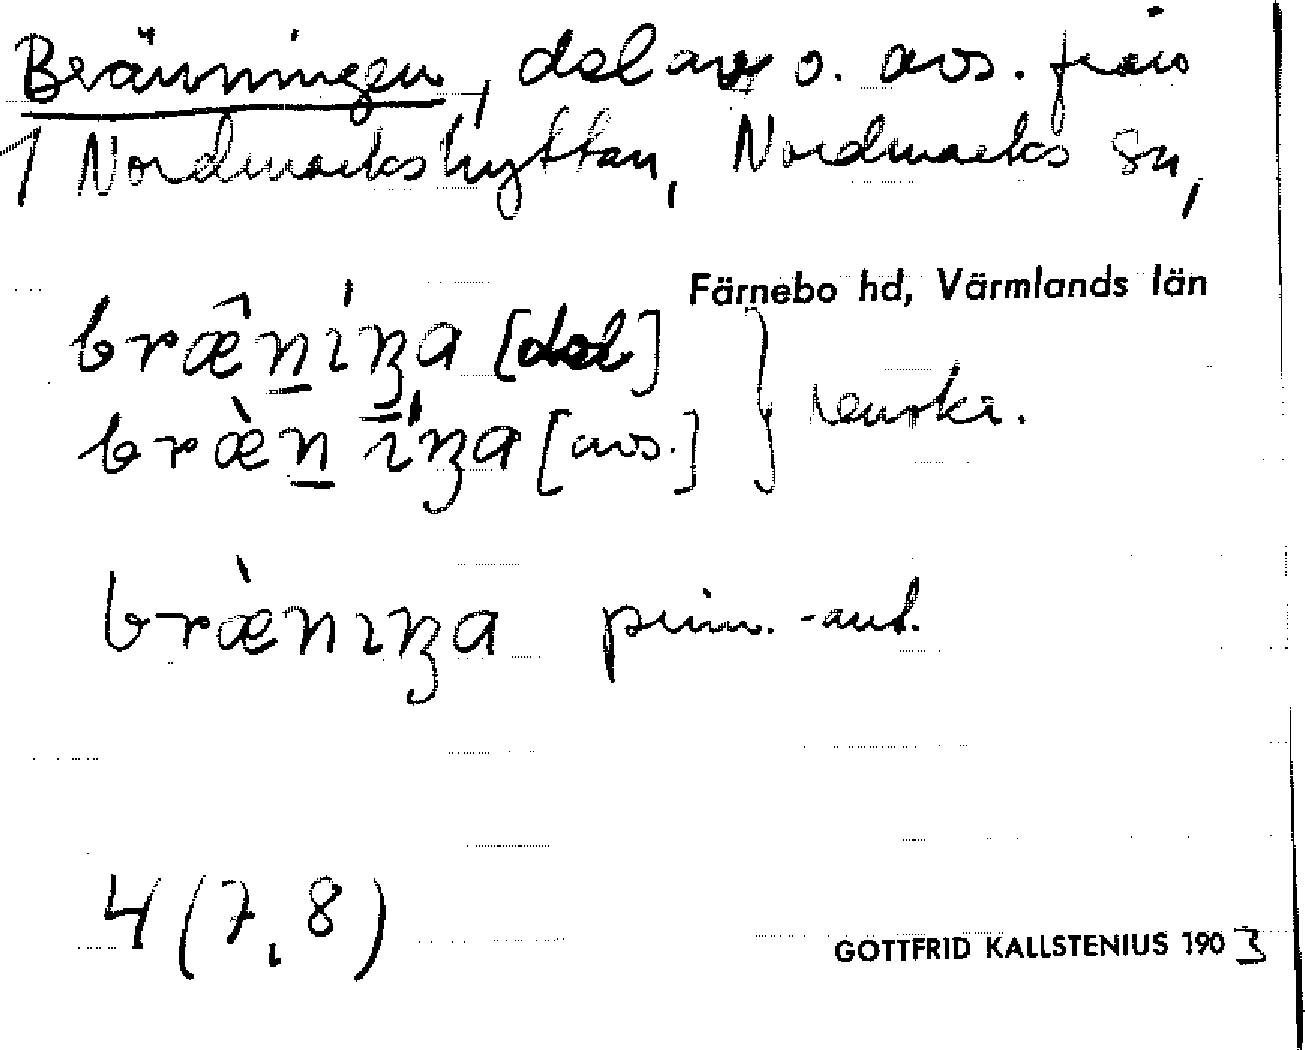 Bränningen, del av o. avs. från
1 Nordmarkshyttan, Nordmarks sn,
Färnebo hd, Värmlands län
bræ̂n̲íŋa [del]
bræ̀n̲ íŋa [avs.]
bræ̀nıŋa prim. -ant.
4 (7, 8)
GOTTFRID KALLSTENIUS 1903